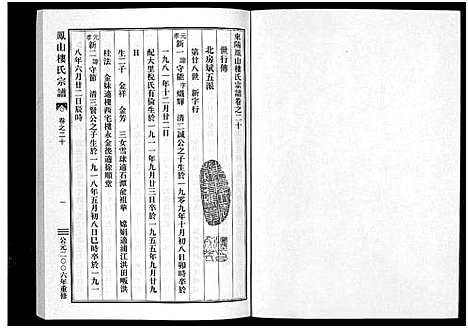 東陽鳳山樓氏宗譜卷之二十
世行傳
北房斌五派
第廿八世 新字行
元孝 新一 諱守能 字熾輝 清二誠公之子生於一九零九年十月初八日卯時卒於
一九八一年十二月廿二日
配大里稅氏有倫生於一九一一年九月廿三日卒於一九五五年九月廿九
生二子 金祥 金芳 三女雪球適石潭俞祖華 嫦娟適浦江洪田畈洪
桂法 金妹適樓西宅樓永金後適徐順棠
新二 諱守節 清三賢公之子生於一九一八年五月初八日巳時卒於一九
八年六月廿二日辰時
鳳山樓氏宗譜
卷之二十
一
公元二〇〇六年重修